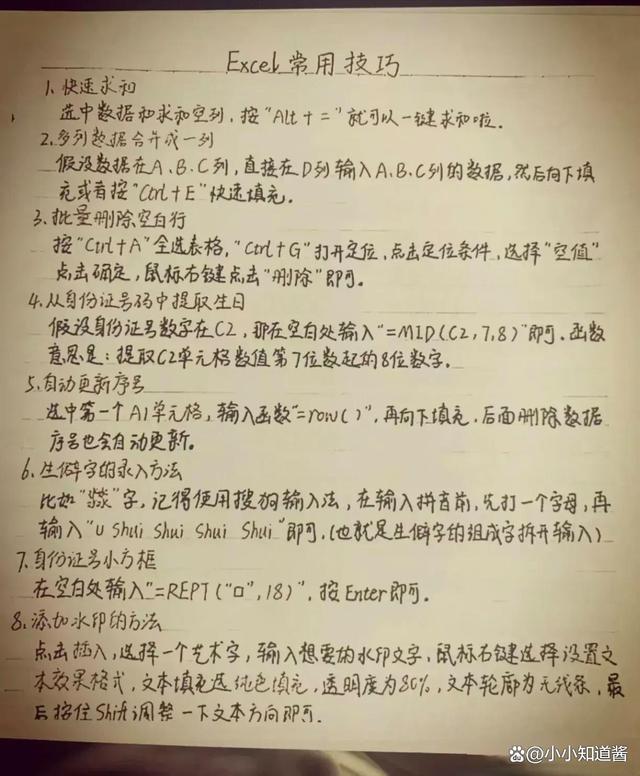 Excel常用技巧
1. 快速求和
选中数据和求和空列，按"Alt+="就可以一键求和啦。
2. 多列数据合并成一列
假设数据在A、B、C列，直接在D列输入A、B、C列的数据，然后向下填
充或者按"Ctrl+E"快速填充。
3. 批量删除空白行
按"Ctrl+A"全选表格，"Ctrl+G"打开定位，点击定位条件，选择"空值"
点击确定，鼠标右键点击"删除"即可。
4. 从身份证号码中提取生日
假设身份证号数字在C2，那在空白处输入"=MID(C2,7,8)"即可。函数
意思是：提取C2单元格数值第7位数起的8位数字。
5. 自动更新序号
选中第一个A1单元格，输入函数"=row()"，再向下填充，后面删除数据
序号也会自动更新。
6. 生僻字的录入方法
比如" "字，记得使用搜狗输入法，在输入拼音前，先打一个字母，再
输入"U shui shui shui shui"即可。(也就是生僻字的组成字拆开输入)
7. 身份证号小方框
在空白处输入"=REPT("□",18)"，按Enter即可。
8. 添加水印的方法
点击插入，选择一个艺术字，输入想要的水印文字，鼠标右键选择设置文
本效果格式，文本填充选纯色填充，透明度为80%，文本轮廓为无线条，最
后按住Shift调整一下文本方向即可。
小小知道酱